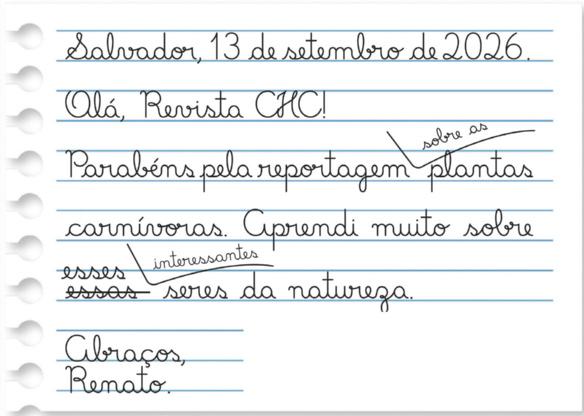 Salvador, 13 de setembro de 2026.
Olá, Revista CHC!
sobre as
Parabéns pela reportagem plantas
carnívoras. Aprendi muito sobre
interessantes
esses
essas seres da natureza.
Abraços,
Renato.